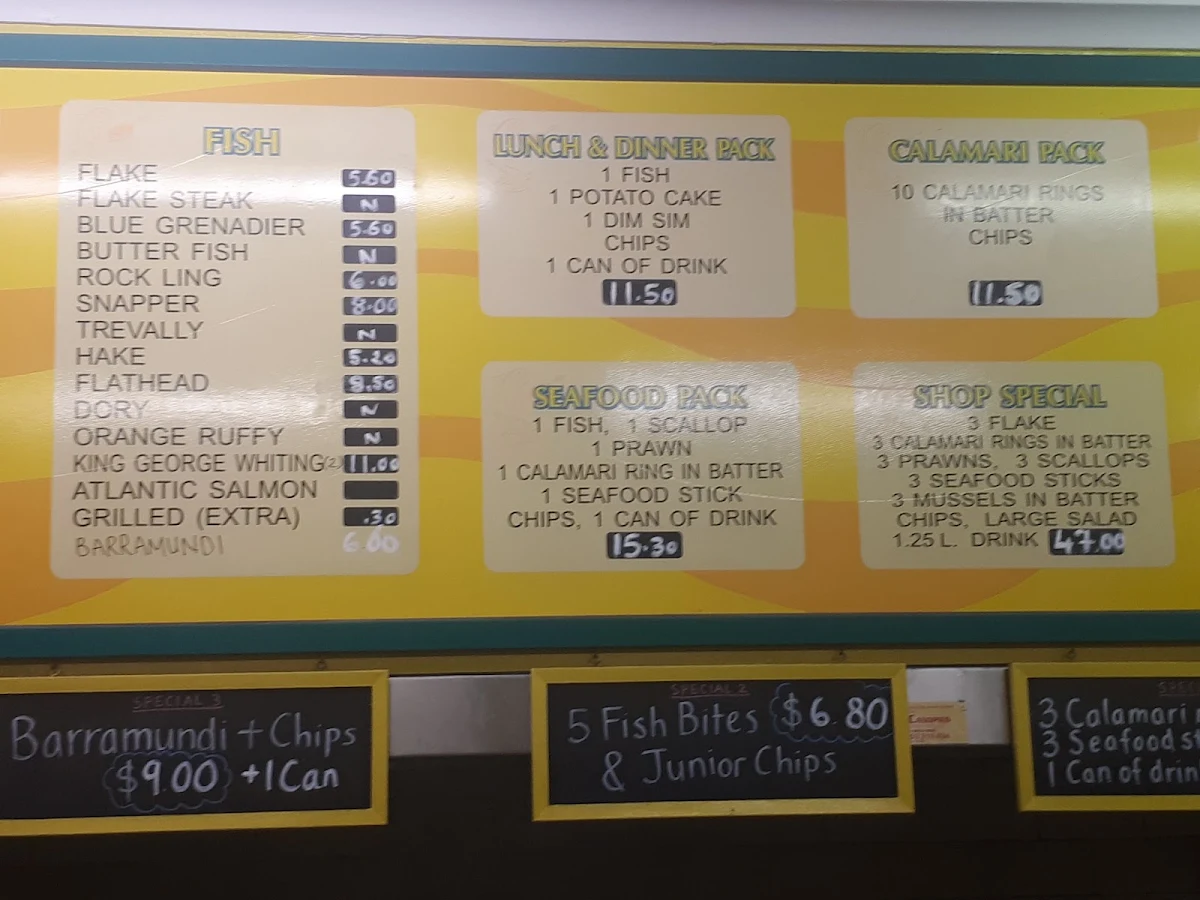 FISH
FLAKE 5.60
FLAKE STEAK N
BLUE GRENADIER 5.60
BUTTER FISH N
ROCK LING 6.00
SNAPPER 8.00
TREVALLY N
HAKE 5.20
FLATHEAD 8.50
DORY N
ORANGE RUFFY N
KING GEORGE WHITING(2) 11.00
ATLANTIC SALMON
GRILLED (EXTRA) .30
BARRAMUNDI 6.00
LUNCH & DINNER PACK
1 FISH
1 POTATO CAKE
1 DIM SIM
CHIPS
1 CAN OF DRINK
11.50
CALAMARI PACK
10 CALAMARI RINGS
IN BATTER
CHIPS
11.50
SEAFOOD PACK
1 FISH, 1 SCALLOP
1 PRAWN
1 CALAMARI RING IN BATTER
1 SEAFOOD STICK
CHIPS, 1 CAN OF DRINK
15.30
SHOP SPECIAL
3 FLAKE
3 CALAMARI RINGS IN BATTER
3 PRAWNS, 3 SCALLOPS
3 SEAFOOD STICKS
3 MUSSELS IN BATTER
CHIPS, LARGE SALAD
1.25 L. DRINK 47.00
SPECIAL 3
Barramundi + Chips
$9.00 +1 Can
SPECIAL 2
5 Fish Bites $6.80
& Junior Chips
3 Calamari
3 Seafood
1 Can of